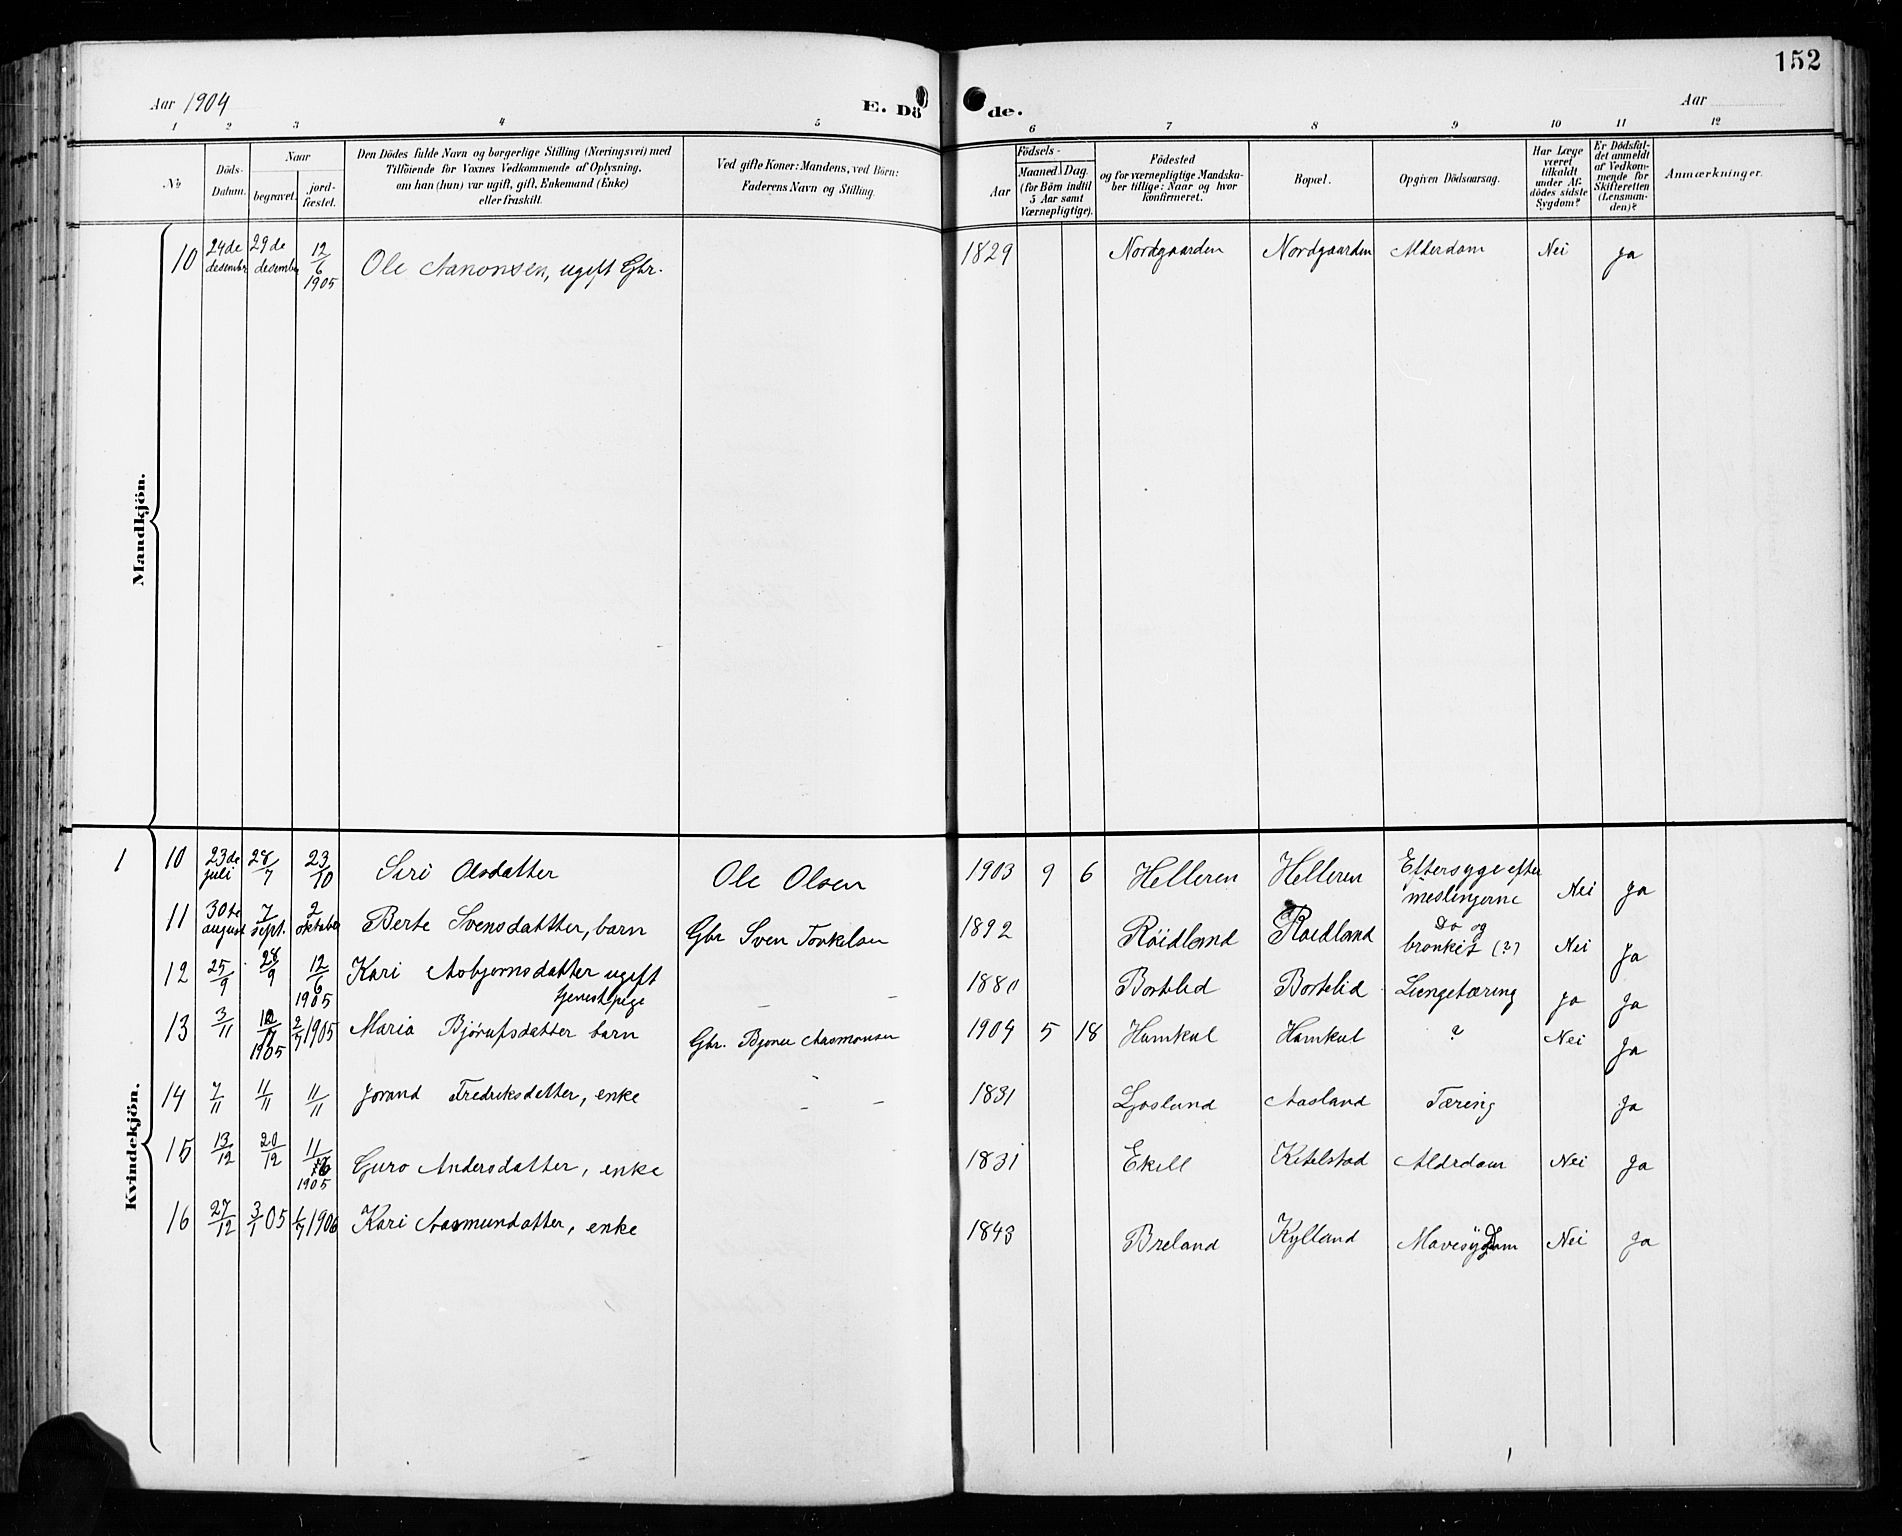 152
Aar 1904 E. Dö de. Aar
1 2 3 4 5 6 7 8 9 10 11 12
No
Döds-Datum.
Naar
begravet.
jord-fæstet.
Den Dödes fulde Navn og borgerlige Stilling (Næringsvei) med
Tilföiende for Voxnes Vedkommende af Oplysning,
om han (hun) var ugift, gift, Enkemand (Enke)
eller fraskilt.
Ved gifte Koner: Mandens, ved Börn:
Faderens Navn og Stilling.
Födsels-
Aar
Maaned Dag.
(for Börn indtil
5 Aar samt
Værnepligtige).
Födested
og for værnepligtige Mandska-
ber tillige: Naar og hvor
konfirmeret.
Bopæl.
Opgiven Dödsaarsag.
Har Læge
været
tilkaldt
under Af-
dödes sidste
Sygdom?
Er Dödsfal-
det anmeldt
af Vedkom-
mende for
Skifteretten
(Lensman-
den)?
Anmærkninger.
Mandkjön.
10 24de desembr 29de desember 12/6 1905 Ole Aanonsen, ugift Gbr. 1829 Nordgaarden Nordgaarden Alderdom Nei Ja
Kvindekjön.
1 10 23de juli 28/7 23/10 Siri Olsdatter Ole Olsen 1903 9 6 Helleren Helleren Eftersyge efter meslingerne Nei Ja
11 30te august 7 sept. 2 oktober Berte Svensdattter, barn Gbr Sven Torkelsen 1892 Röidland Röidland Do og bronkit (?) Nei Ja
12 25/9 28/9 12/6 1905 Kari Asbjørnsdatter ugift tjenestpige - - 1880 Bortelid Bortelid Lungetæring Ja Ja
13 3/11 1905 2/7 1905 Maria datter barn Gbr. Aasmonsen 1904 5 18 Homkul Homkul ? Nei Ja
14 7/11 11/11 11/11 Jorand Fredriksdatter, enke - - - 1831 Ljosland Aasland Tæring Ja
15 13/12 20/12 11/6 1905 Guro Andersdatter, enke 1831 Ekell Ketelstad Alderdom Nei Ja
16 27/12 3/1 05 1/7 1906 Kari Aasmundatter, enke 1843 Breland Kylland Mavesygdom Nei Ja